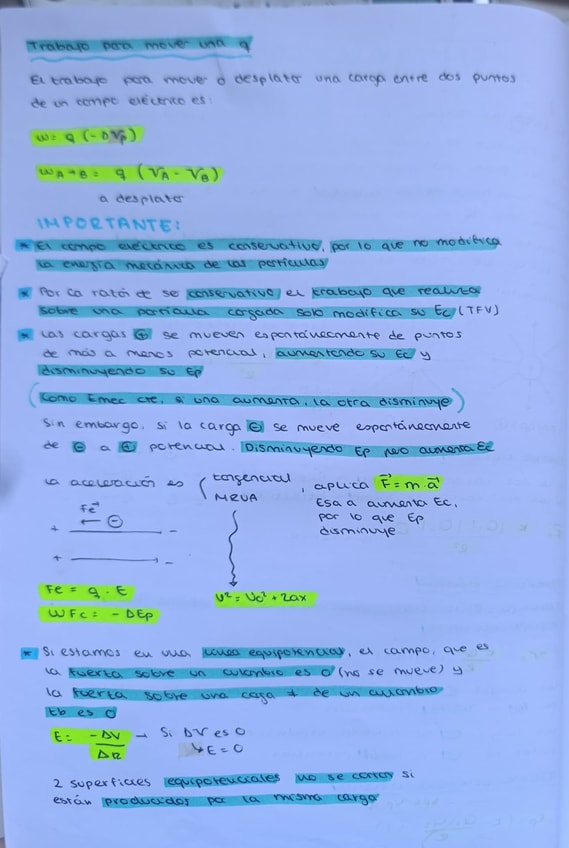 Trabajo para mover una q
El trabajo para mover o desplazar una carga entre dos puntos
de un campo eléctrico es:
W = q (-ΔVp)
W A→B = q (VA - VB)
a desplazar
IMPORTANTE:
* El campo eléctrico es conservativo, por lo que no modifica
la energía mecánica de las partículas
* Por la razón de se conservativo, el trabajo que realiza
sobre una partícula cargada solo modifica su Ec (TFV)
* Las cargas ⊕ se mueven espontáneamente de puntos
de más a menos potencial, aumentando su Ec y
disminuyendo su Ep
(Como Emec cte, si una aumenta, la otra disminuye)
Sin embargo, si la carga ⊖ se mueve espontáneamente
de ⊖ a ⊕ potencial. Disminuyendo Ep pero aumenta Ec
La aceleración es { tangencial, aplica F⃗ = m·a⃗
MRUA
Esa a aumenta Ec,
por lo que Ep
disminuye
Fe⃗
← ⊖
+ ——— -
+ ———→ -
Fe = q · E
WFc = -ΔEp
V² = Vo² + 2ax
* Si estamos en una línea equipotencial, el campo, que es
la fuerza sobre un culombio es 0 (no se mueve) y
la fuerza sobre una caga + de un culombio
tb es 0
E = -ΔV/ΔR → Si ΔV es 0
↳ E = 0
2 superficies equipotenciales no se cortan si
están producidos por la misma carga